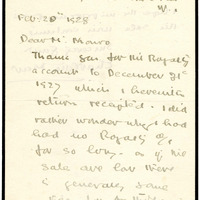 W.1
Feb. 20th 1928
Dear Mr Monro
Thank you for the Royalty
account to December 31st
1927 which I herewith
return receipted. I did
rather wonder why I had
had no Royalty
for so long - as if the
sales are low there
is generally some